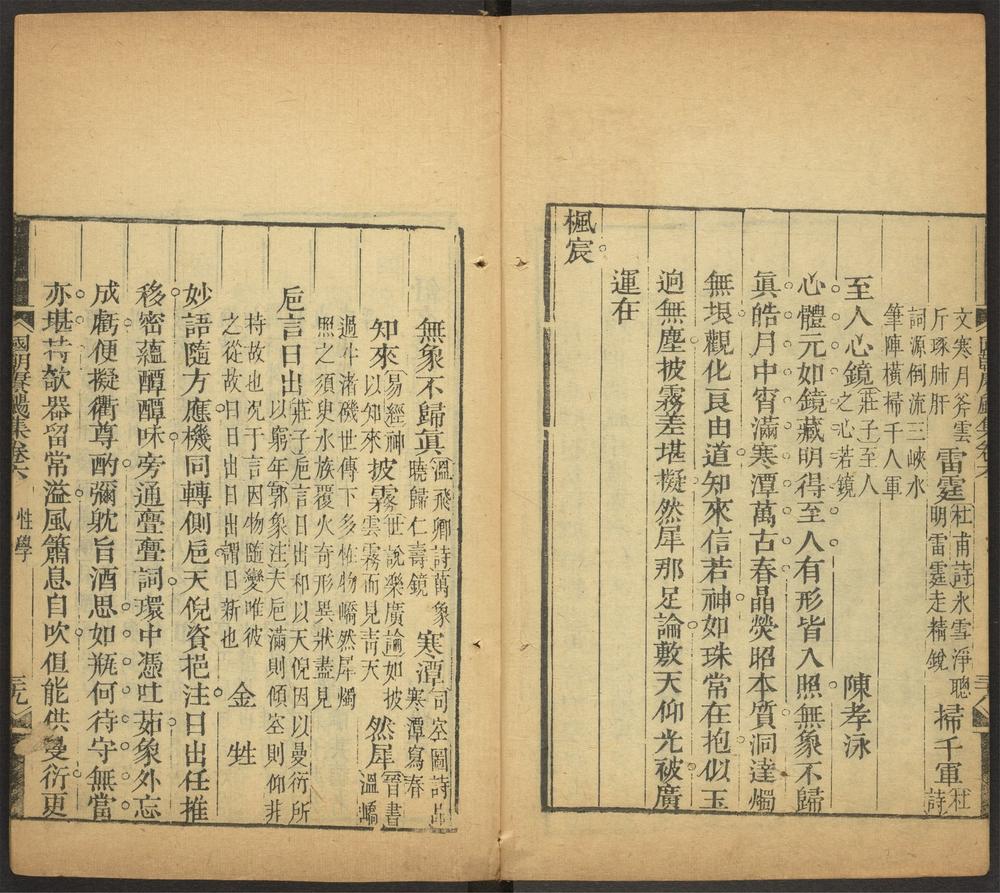 文寒月斧雲
斤琢肺肝 雷霆 杜甫詩氷雪淨聰
明雷霆走精銳 掃千軍 杜
詩
詞源倒流三峽水
筆陣橫掃千人軍
至人心鏡 莊子至人
之心若鏡 陳孝泳
心體元如鏡藏明得至人有形皆入照無象不歸
眞皓月中宵滿寒潭萬古春晶熒昭本質洞達燭
無垠觀化良由道知來信若神如珠常在抱似玉
逈無塵披霧差堪擬然犀那足論敷天仰光被廣
運在
楓宸
無象不歸眞 溫飛卿詩萬象
曉歸仁壽鏡 寒潭 司空圖詩
寒潭寫春
知來 易經神
以知來 披霧 世說樂廣論如披
雲霧而見青天 然犀 晉書
溫嶠
過牛渚磯世傳下多怪物嶠然犀燭
照之須臾水族覆火奇形異狀盡見
巵言日出 莊子巵言日出和以天倪因以曼衍所
以窮年郭象注夫巵滿則傾空則仰非
特故也况于言因物隨變唯彼
之從故曰日出日出謂日新也 金甡
妙語隨方應機同轉側巵天倪資挹注日出任推
移密蘊醰醰味旁通亹亹詞環中憑吐茹象外忘
成虧便擬衢尊酌彌躭旨酒思如瓶何待守無當
亦堪持欹器留常溢風簫息自吹但能供曼衍更
國朝賡颺集卷六 性學 三九